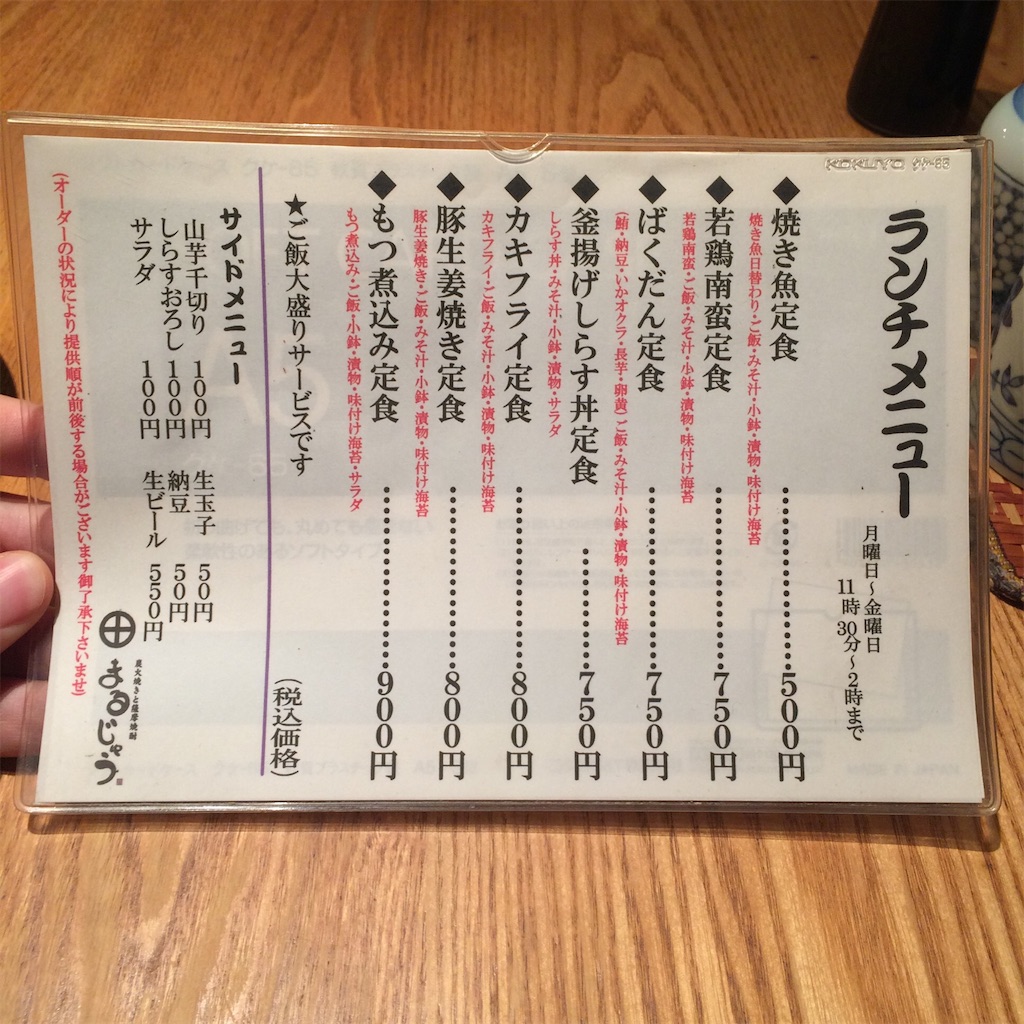 ランチメニュー
月曜日～金曜日
11時30分～2時まで
◆焼き魚定食…………500円
焼き魚日替わり・ご飯・みそ汁・小鉢・漬物・味付け海苔
◆若鶏南蛮定食…………750円
若鶏南蛮・ご飯・みそ汁・小鉢・漬物・味付け海苔
◆ばくだん定食…………750円
(鮪・納豆・いかオクラ・長芋・卵黄)ご飯・みそ汁・小鉢・漬物・味付け海苔
◆釜揚げしらす丼定食…………750円
しらす丼・みそ汁・小鉢・漬物・サラダ
◆カキフライ定食…………800円
カキフライ・ご飯・みそ汁・小鉢・漬物・味付け海苔
◆豚生姜焼き定食…………800円
豚生姜焼き・ご飯・みそ汁・小鉢・漬物・味付け海苔
◆もつ煮込み定食…………900円
もつ煮込み・ご飯・小鉢・漬物・味付け海苔・サラダ
★ご飯大盛りサービスです
(税込価格)
サイドメニュー
山芋千切り 100円 生玉子 50円
しらすおろし 100円 納豆 50円
サラダ 100円 生ビール 550円
(オーダーの状況により提供順が前後する場合がございます御了承下さいませ)
炭火焼きと薩摩焼酎
まるじゅう
KOKUYO クケ-65